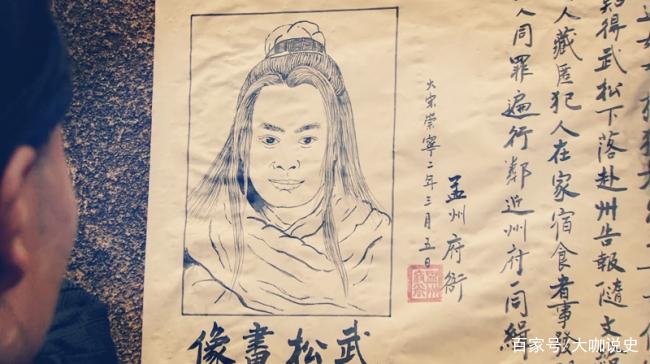 得武松下落赴州告報隨文
人藏匿犯人在家宿食者事
人同罪遍行鄰近州府一同緝
孟州府衙
大宋崇寧二年三月五日
武松畫像
百家号/大咖说史